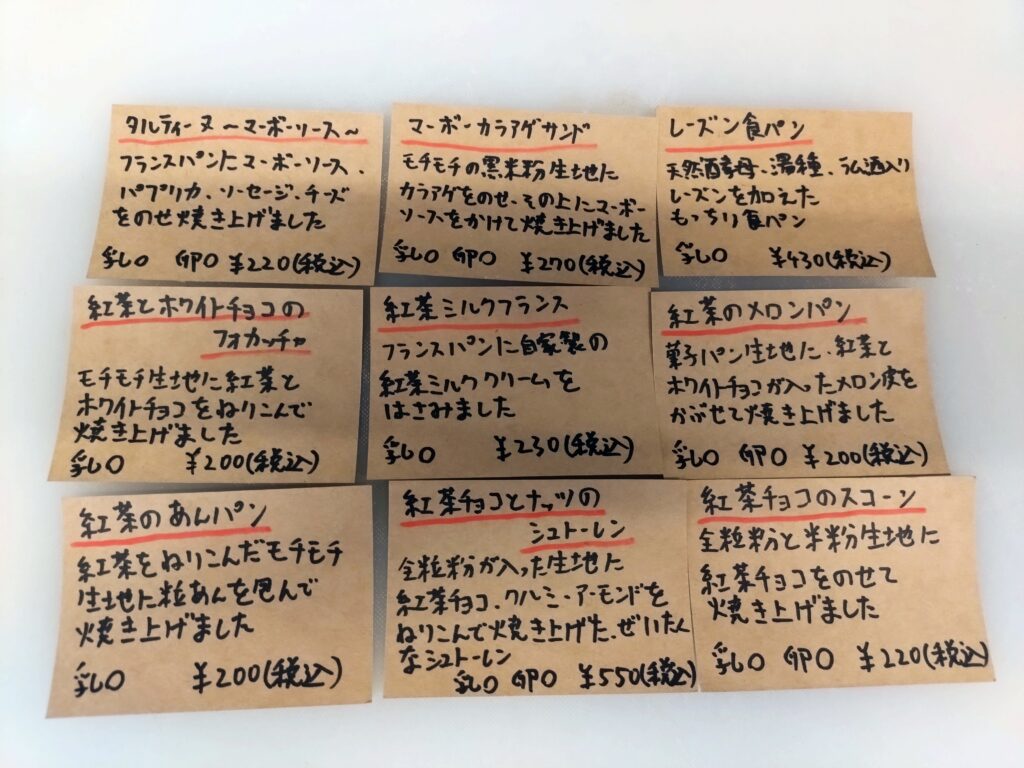 タルティーヌ〜マーボーソース〜
フランスパンにマーボーソース、
パプリカ、ソーセージ、チーズ
をのせ焼き上げました
乳〇 卵〇 ¥220(税込)
マーボーカラアゲサンド
モチモチの黒米粉生地に
カラアゲをのせ、その上にマーボー
ソースをかけて焼き上げました
乳〇 卵〇 ¥270(税込)
レーズン食パン
天然酵母、湯種、ラム酒入り
レーズンを加えた
もっちり食パン
乳〇 ¥430(税込)
紅茶とホワイトチョコの
フォカッチャ
モチモチ生地に紅茶と
ホワイトチョコをねりこんで
焼き上げました
乳〇 ¥200(税込)
紅茶ミルクフランス
フランスパンに自家製の
紅茶ミルククリームを
はさみました
乳〇 ¥230(税込)
紅茶のメロンパン
菓子パン生地に、紅茶と
ホワイトチョコが入ったメロン皮を
かぶせて焼き上げました
乳〇 卵〇 ¥200(税込)
紅茶のあんパン
紅茶をねりこんだモチモチ
生地に粒あんを包んで
焼き上げました
乳〇 ¥200(税込)
紅茶チョコとナッツの
シュトーレン
全粒粉が入った生地に
紅茶チョコ、クルミ、アーモンドを
ねりこんで焼き上げた、ぜいたく
なシュトーレン
乳〇 卵〇 ¥550(税込)
紅茶チョコのスコーン
全粒粉と米粉生地に
紅茶チョコをのせて
焼き上げました
乳〇 卵〇 ¥220(税込)